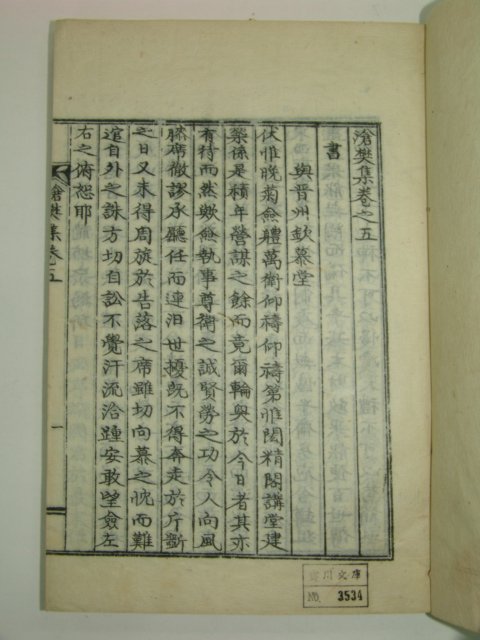 滄樊集卷之五
書
與晋州欽慕堂
伏惟晚菊僉體萬衛仰禱仰禱第惟閎精閣講堂建
築係是積年營謀之餘而竟爾輪奐於今日者其亦
有待而然歟僉執事尊衛之誠賢勞之功令人向風
膝席徹謬承聽任而連汨世擾旣不得奔走於斤斲
之日又未得周旋於告落之席雖切向慕之忱而難
逭自外之誅方切自訟不覺汗流洽踵安敢望僉左
右之俯恕耶
滄樊集卷五
一
文庫
NO. 3534